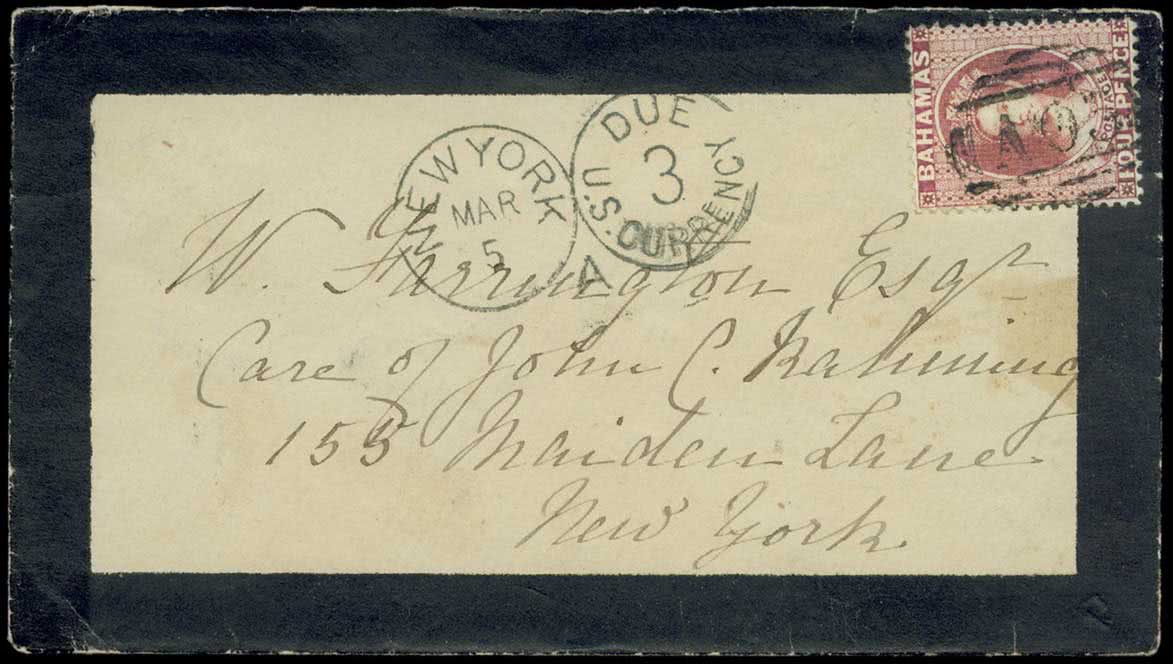 BAHAMAS
POSTAGE
FOUR PENCE
A05
NEW YORK
MAR
5
DUE
3
U.S. CURRENCY
A
W. Farrington Esqr
Care of John C. Rahming
155 Maiden Lane
New York.